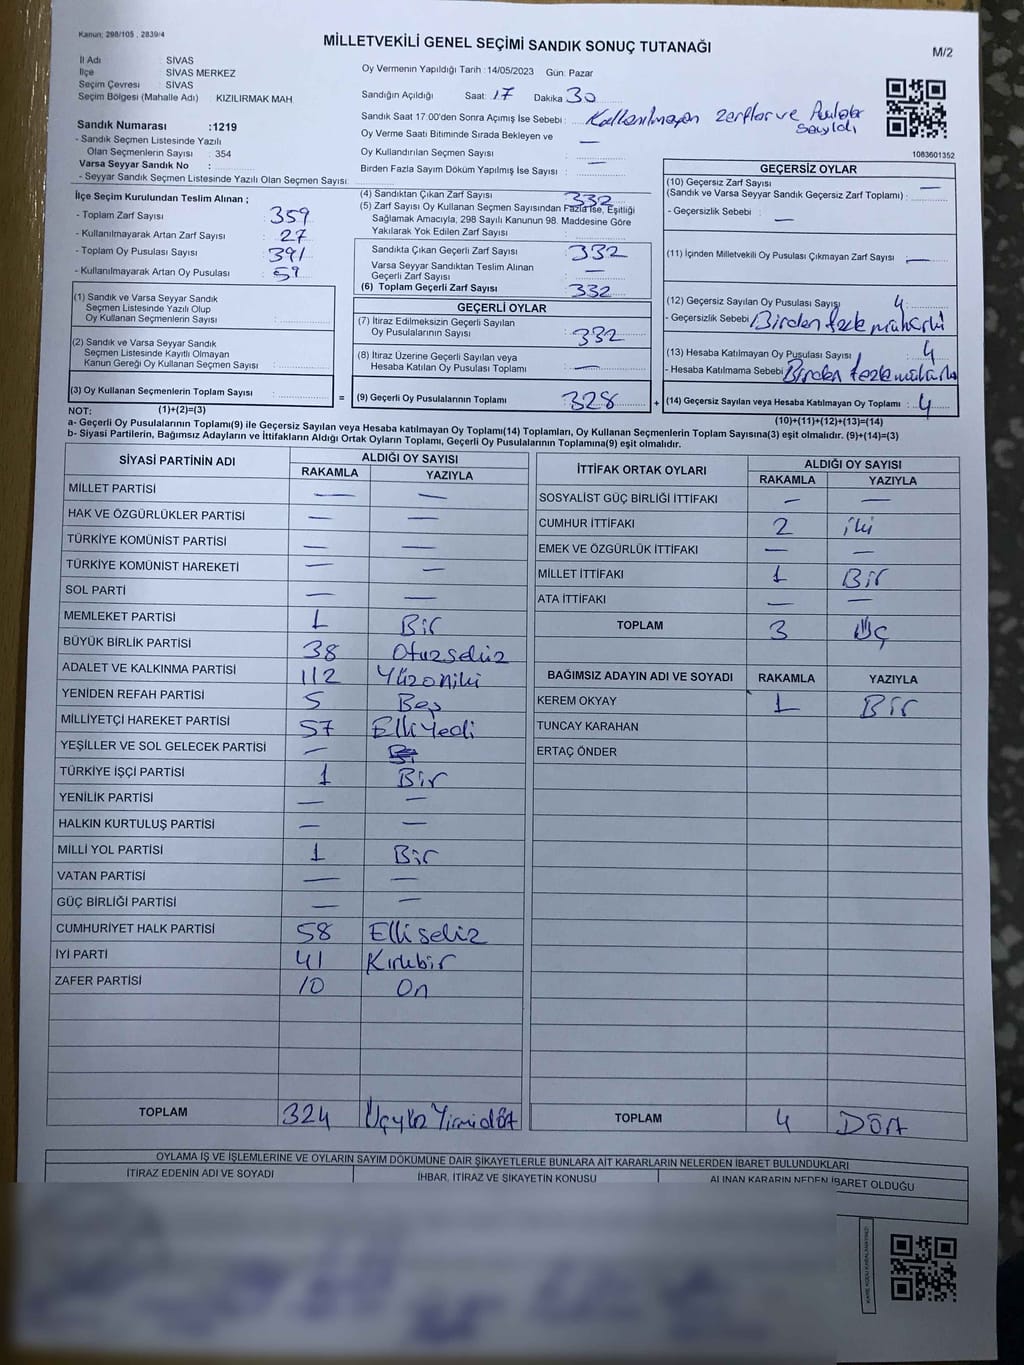 Kanun: 298/105 , 2839/4
MİLLETVEKİLİ GENEL SEÇİMİ SANDIK SONUÇ TUTANAĞI
M/2
İl Adı : SİVAS
İlçe : SİVAS MERKEZ
Seçim Çevresi : SİVAS
Seçim Bölgesi (Mahalle Adı) KIZILIRMAK MAH.
Sandık Numarası :1219
- Sandık Seçmen Listesinde Yazılı
Olan Seçmenlerin Sayısı : 354
Varsa Seyyar Sandık No :
- Seyyar Sandık Seçmen Listesinde Yazılı Olan Seçmen Sayısı:
Oy Vermenin Yapıldığı Tarih :14/05/2023 Gün: Pazar
Sandığın Açıldığı Saat: 17 Dakika 30
Sandık Saat 17.00'den Sonra Açımış İse Sebebi : Kullanılmayan zarflar ve
sayıldı
Oy Verme Saati Bitiminde Sırada Bekleyen ve
Oy Kullandırılan Seçmen Sayısı : —
Birden Fazla Sayım Döküm Yapılmış İse Sayısı : —
1083601352
İlçe Seçim Kurulundan Teslim Alınan ;
- Toplam Zarf Sayısı : 359
- Kullanılmayarak Artan Zarf Sayısı : 27
- Toplam Oy Pusulası Sayısı : 391
- Kullanılmayarak Artan Oy Pusulası : 59
(1) Sandık ve Varsa Seyyar Sandık
Seçmen Listesinde Yazılı Olup
Oy Kullanan Seçmenlerin Sayısı :
(2) Sandık ve Varsa Seyyar Sandık
Seçmen Listesinde Kayıtlı Olmayan
Kanun Gereği Oy Kullanan Seçmen Sayısı :
(3) Oy Kullanan Seçmenlerin Toplam Sayısı :
(4) Sandıktan Çıkan Zarf Sayısı : 332
(5) Zarf Sayısı Oy Kullanan Seçmen Sayısından Fazla İse, Eşitliği
Sağlamak Amacıyla; 298 Sayılı Kanunun 98. Maddesine Göre
Yakılarak Yok Edilen Zarf Sayısı :
Sandıkta Çıkan Geçerli Zarf Sayısı : 332
Varsa Seyyar Sandıktan Teslim Alınan
Geçerli Zarf Sayısı : —
(6) Toplam Geçerli Zarf Sayısı : 332
GEÇERLİ OYLAR
(7) İtiraz Edilmeksizin Geçerli Sayılan
Oy Pusulalarının Sayısı : 332
(8) İtiraz Üzerine Geçerli Sayılan veya
Hesaba Katılan Oy Pusulası Toplamı : —
= (9) Geçerli Oy Pusulalarının Toplamı 328 +
GEÇERSİZ OYLAR
(10) Geçersiz Zarf Sayısı
(Sandık ve Varsa Seyyar Sandık Geçersiz Zarf Toplamı) : —
- Geçersizlik Sebebi : —
(11) İçinden Milletvekili Oy Pusulası Çıkmayan Zarf Sayısı : —
(12) Geçersiz Sayılan Oy Pusulası Sayısı : 4
- Geçersizlik Sebebi : Birden fazla
(13) Hesaba Katılmayan Oy Pusulası Sayısı : 4
- Hesaba Katılmama Sebebi : Birden fazla
(14) Geçersiz Sayılan veya Hesaba Katılmayan Oy Toplamı : 4
NOT: (1)+(2)=(3)
(10)+(11)+(12)+(13)=(14)
a- Geçerli Oy Pusulalarının Toplamı(9) ile Geçersiz Sayılan veya Hesaba katılmayan Oy Toplamı(14) Toplamları, Oy Kullanan Seçmenlerin Toplam Sayısına(3) eşit olmalıdır. (9)+(14)=(3)
b- Siyasi Partilerin, Bağımsız Adayların ve İttifakların Aldığı Ortak Oyların Toplamı, Geçerli Oy Pusulalarının Toplamına(9) eşit olmalıdır.
SİYASİ PARTİNİN ADI ALDIĞI OY SAYISI
RAKAMLA YAZIYLA
MİLLET PARTİSİ — —
HAK VE ÖZGÜRLÜKLER PARTİSİ — —
TÜRKİYE KOMÜNİST PARTİSİ — —
TÜRKİYE KOMÜNİST HAREKETİ — —
SOL PARTİ — —
MEMLEKET PARTİSİ 1 Bir
BÜYÜK BİRLİK PARTİSİ 38 Otuzsekiz
ADALET VE KALKINMA PARTİSİ 112 Yüzoniki
YENİDEN REFAH PARTİSİ 5 Beş
MİLLİYETÇİ HAREKET PARTİSİ 57 Elli Yedi
YEŞİLLER VE SOL GELECEK PARTİSİ —
TÜRKİYE İŞÇİ PARTİSİ 1 Bir
YENİLİK PARTİSİ — —
HALKIN KURTULUŞ PARTİSİ — —
MİLLİ YOL PARTİSİ 1 Bir
VATAN PARTİSİ — —
GÜÇ BİRLİĞİ PARTİSİ — —
CUMHURİYET HALK PARTİSİ 58 Ellisekiz
İYİ PARTİ 41 Kırkbir
ZAFER PARTİSİ 10 On
TOPLAM 324 Üçyüz Yirmidört
İTTİFAK ORTAK OYLARI ALDIĞI OY SAYISI
RAKAMLA YAZIYLA
SOSYALİST GÜÇ BİRLİĞİ İTTİFAKI — —
CUMHUR İTTİFAKI 2 iki
EMEK VE ÖZGÜRLÜK İTTİFAKI — —
MİLLET İTTİFAKI 1 Bir
ATA İTTİFAKI — —
TOPLAM 3 Üç
BAĞIMSIZ ADAYIN ADI VE SOYADI RAKAMLA YAZIYLA
KEREM OKYAY 1 Bir
TUNCAY KARAHAN
ERTAÇ ÖNDER
TOPLAM 4 Dört
OYLAMA İŞ VE İŞLEMLERİNE VE OYLARIN SAYIM DÖKÜMÜNE DAİR ŞİKAYETLERLE BUNLARA AİT KARARLARIN NELERDEN İBARET BULUNDUKLARI
İTİRAZ EDENİN ADI VE SOYADI İHBAR, İTİRAZ VE ŞİKAYETİN KONUSU ALINAN KARARIN NEDEN İBARET OLDUĞU